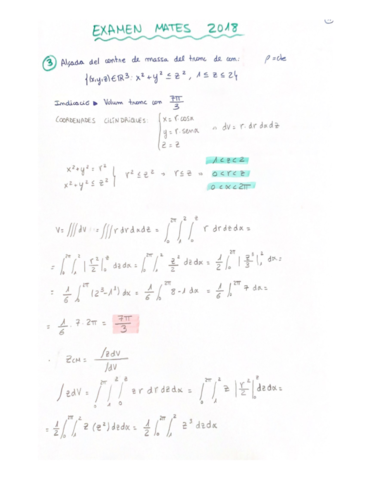 EXAMEN MATES 2018
③ Alçada del centre de massa del tronc de con: ρ=cte
{(x,y,z)∈ℝ³: x²+y² ≤ z², 1 ≤ z ≤ 2}
Indicació ▸ Volum tronc con 7π/3
COORDENADES CILÍNDRIQUES: { x = r cosα
y = r sinα → dV = r dr dα dz
z = z
x²+y² = r²
x²+y² ≤ z² } r² ≤ z² → r ≤ z → 1<z<2
0<r<z
0<α<2π
V = ∭dV = ∭ r dr dα dz = ∫₀^2π ∫₁^2 ∫₀^z r dr dz dα =
= ∫₀^2π ∫₁^2 |r²/2|₀^z dz dα = ∫₀^2π ∫₁^2 z²/2 dz dα = 1/2 ∫₀^2π |z³/3|₁^2 dα =
= 1/6 ∫₀^2π (2³-1³) dα = 1/6 ∫₀^2π 8-1 dα = 1/6 ∫₀^2π 7 dα =
= 1/6 · 7 · 2π = 7π/3
· z_CM = ∫zdV / ∫dV
∫zdV = ∫₀^2π ∫₁^2 ∫₀^z z r dr dz dα = ∫₀^2π ∫₁^2 z |r²/2|₀^z dz dα =
= 1/2 ∫₀^2π ∫₁^2 z (z²) dz dα = 1/2 ∫₀^2π ∫₁^2 z³ dz dα